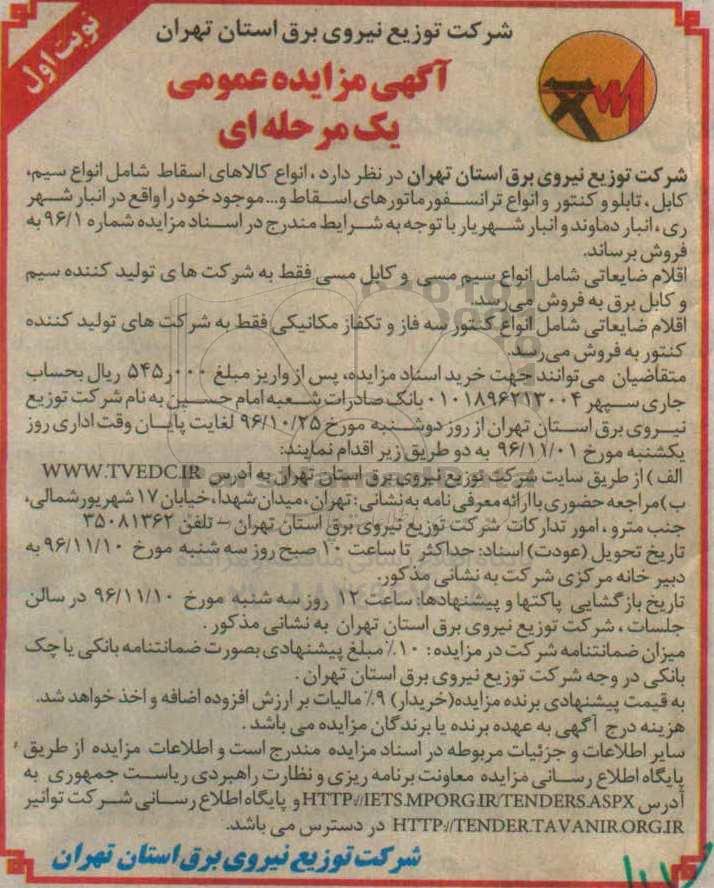 نوبت اول
شرکت توزیع نیروی برق استان تهران
آگهی مزایده عمومی
یک مرحله ای
شرکت توزیع نیروی برق استان تهران در نظر دارد، انواع کالاهای اسقاط شامل انواع سیم،
کابل، تابلو و کنتور و انواع ترانسفورماتورهای اسقاط و... موجود خود را واقع در انبار شهر
ری، انبار دماوند و انبار شهریار با توجه به شرایط مندرج در اسناد مزایده شماره ۹۶/۱ به
فروش برساند.
اقلام ضایعاتی شامل انواع سیم مسی و کابل مسی فقط به شرکت ها ی تولید کننده سیم
و کابل برق به فروش می رسد.
اقلام ضایعاتی شامل انواع کنتور سه فاز و تکفاز مکانیکی فقط به شرکت های تولید کننده
کنتور به فروش می‌رسد.
متقاضیان می‌توانند جهت خرید اسناد مزایده، پس از واریز مبلغ ۵۴۵ر۰۰۰ ریال بحساب
جاری سپهر ۰۱۰۱۸۹۶۲۱۳۰۰۴ بانک صادرات شعبه امام حسین به نام شرکت توزیع
نیروی برق استان تهران از روز دوشنبه مورخ ۹۶/۱۰/۲۵ لغایت پایان وقت اداری روز
یکشنبه مورخ ۹۶/۱۱/۰۱ به دو طریق زیر اقدام نمایند:
الف) از طریق سایت شرکت توزیع نیروی برق استان تهران به آدرس WWW.TVEDC.IR
ب) مراجعه حضوری با ارائه معرفی نامه به نشانی: تهران، میدان شهدا، خیابان ۱۷ شهریور شمالی،
جنب مترو، امور تدارکات شرکت توزیع نیروی برق استان تهران – تلفن ۳۵۰۸۱۳۶۲
تاریخ تحویل (عودت) اسناد: حداکثر تا ساعت ۱۰ صبح روز سه شنبه مورخ ۹۶/۱۱/۱۰ به
دبیر خانه مرکزی شرکت به نشانی مذکور.
تاریخ بازگشایی پاکتها و پیشنهادها: ساعت ۱۲ روز سه شنبه مورخ ۹۶/۱۱/۱۰ در سالن
جلسات، شرکت توزیع نیروی برق استان تهران به نشانی مذکور.
میزان ضمانتنامه شرکت در مزایده: ۱۰٪ مبلغ پیشنهادی بصورت ضمانتنامه بانکی یا چک
بانکی در وجه شرکت توزیع نیروی برق استان تهران.
به قیمت پیشنهادی برنده مزایده(خریدار) ۹٪ مالیات بر ارزش افزوده اضافه و اخذ خواهد شد.
هزینه درج آگهی به عهده برنده یا برندگان مزایده می باشد.
سایر اطلاعات و جزئیات مربوطه در اسناد مزایده مندرج است و اطلاعات مزایده از طریق
پایگاه اطلاع رسانی مزایده معاونت برنامه ریزی و نظارت راهبردی ریاست جمهوری به
آدرس HTTP://IETS.MPORG.IR/TENDERS.ASPX و پایگاه اطلاع رسانی شرکت توانیر
HTTP://TENDER.TAVANIR.ORG.IR در دسترس می باشد.
شرکت توزیع نیروی برق استان تهران